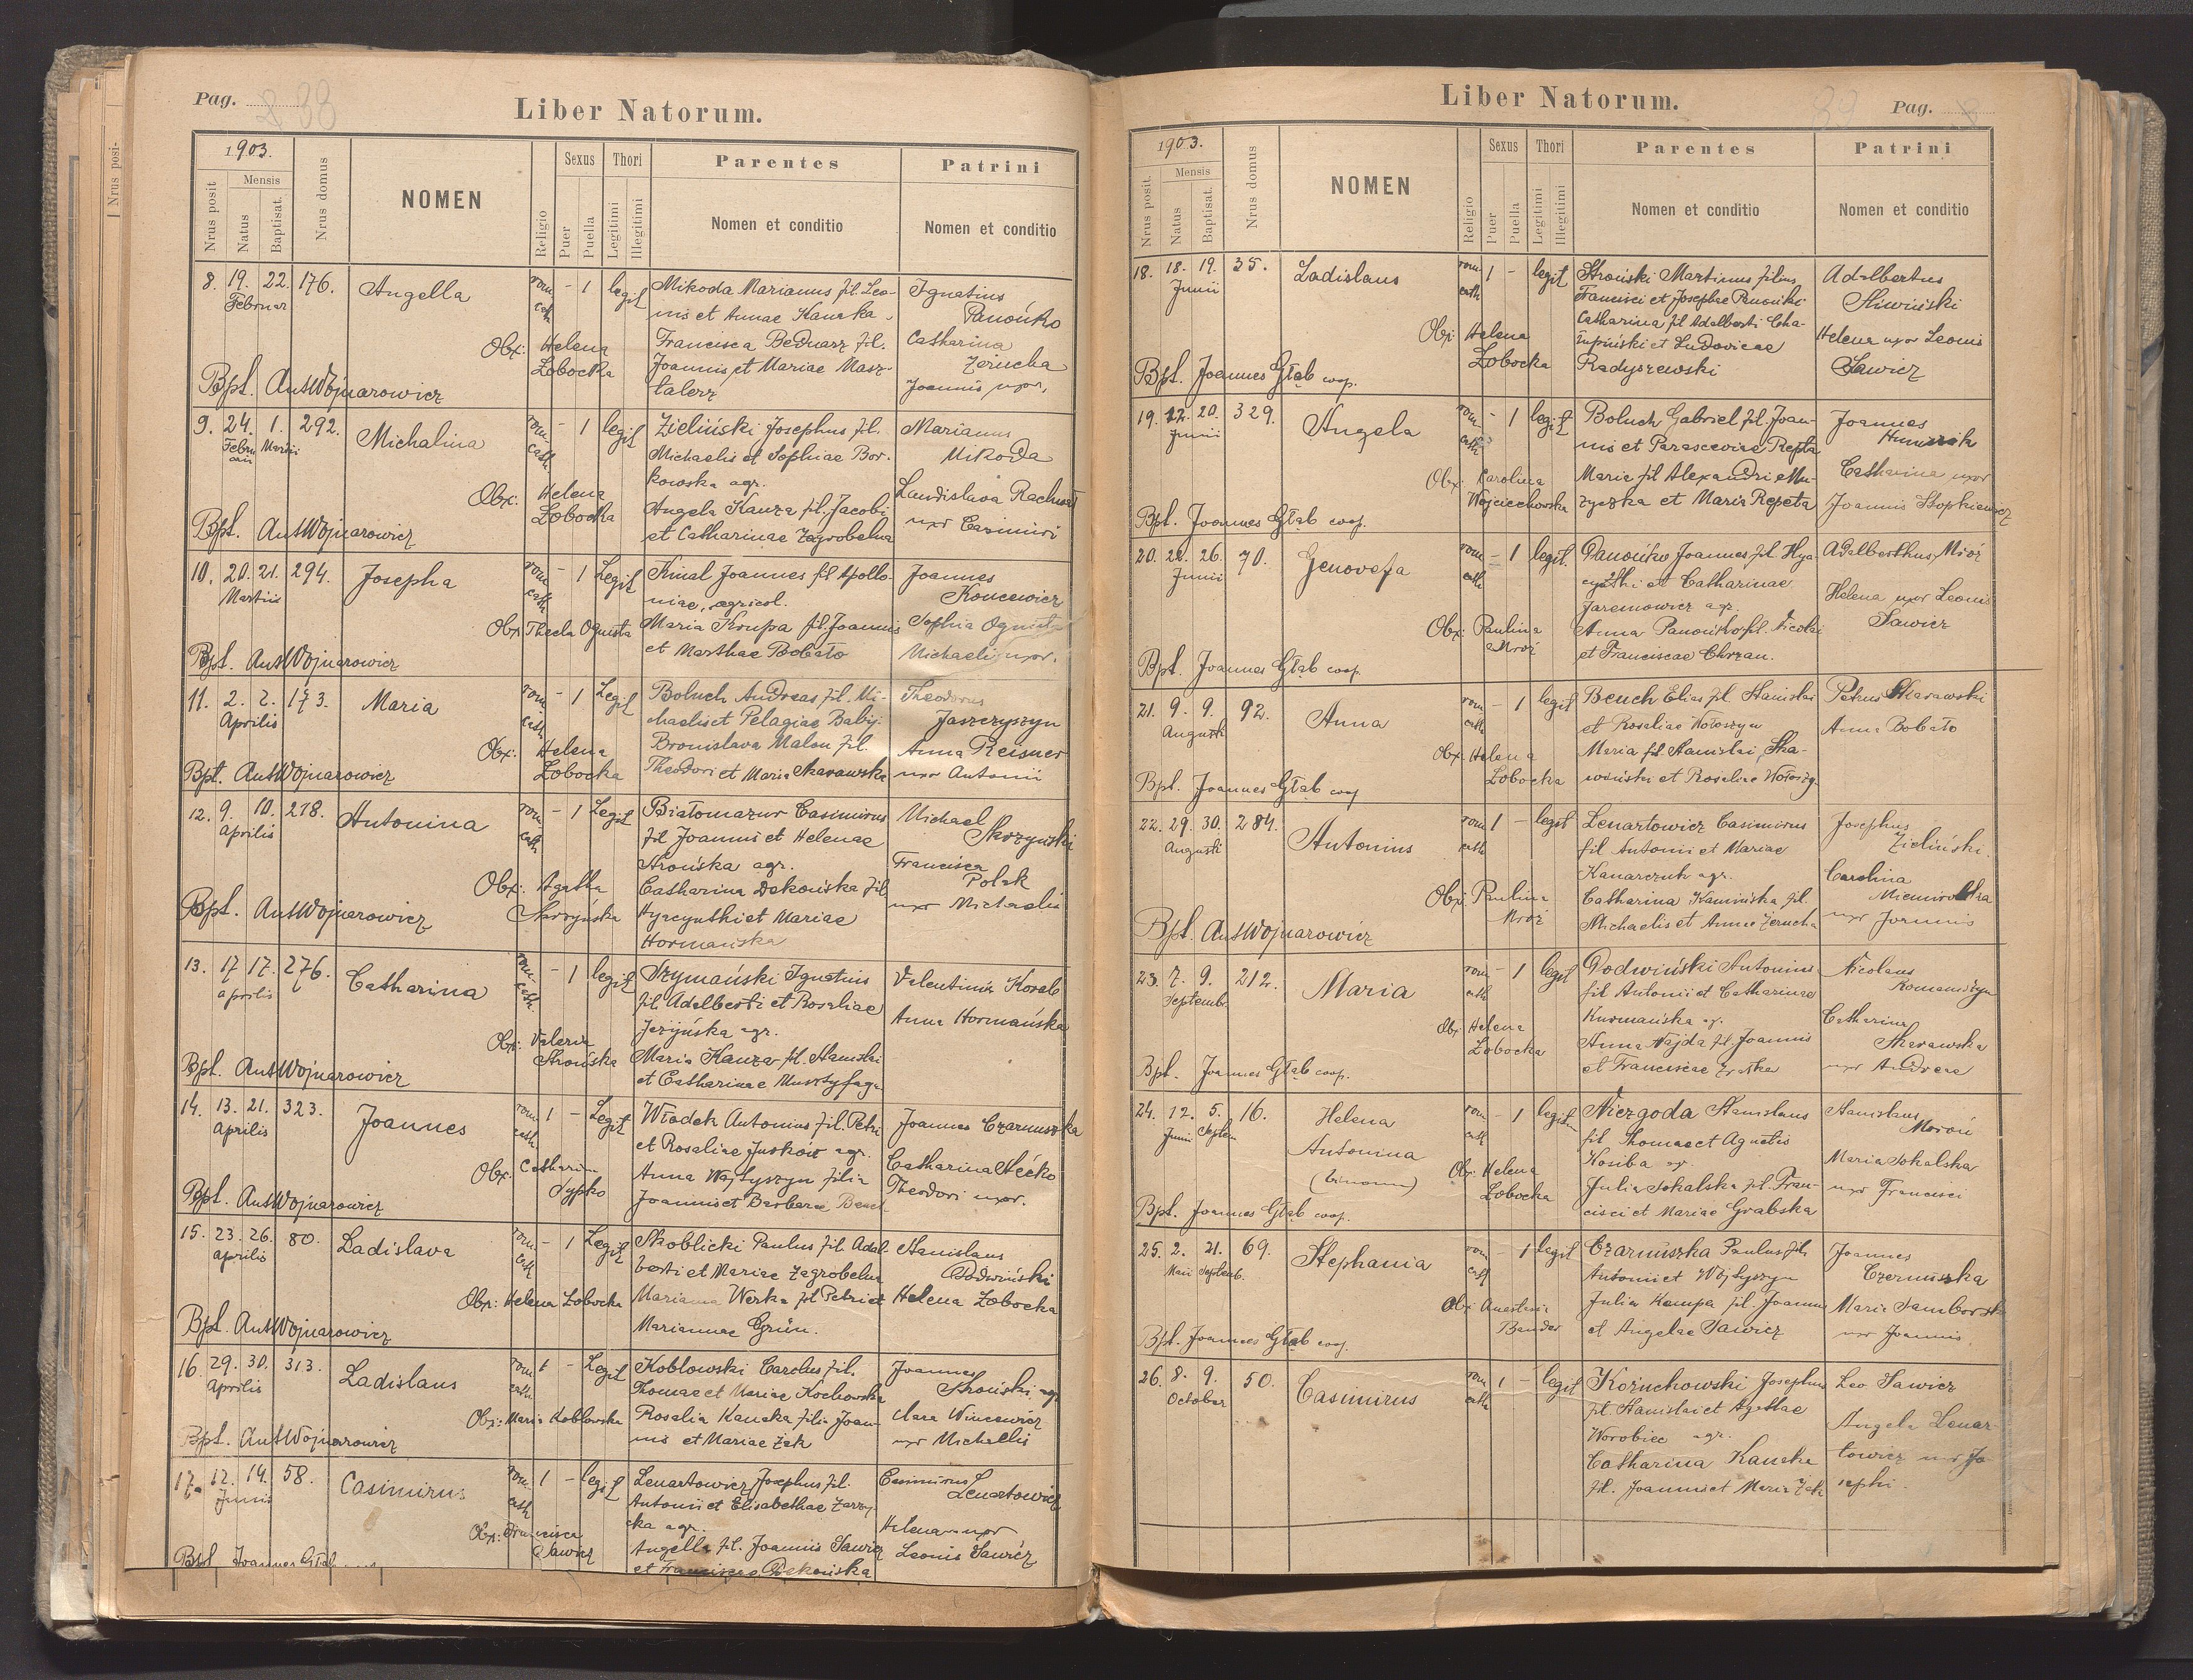 Pag. 38
Liber Natorum.
1903.
Nrus posit
Mensis
Natus
Baptisat.
Nrus domus
NOMEN
Religio
Sexus
Puer
Puella
Thori
Legitimi
Illegitimi
Parentes
Nomen et conditio
Patrini
Nomen et conditio
8. 19. 22. 176. Angella rom. cath. - 1 legit
Februar
Mikoda Marianus fil. Leo-
nis et Annae Kaneka
Francisca Bednarz fil.
Joannis et Mariae Masz-
talerz
Ignatius
Panońko
Catharina
Zerucha
Joannis uxor.
Obx: Helena
Łobocka
Bpt. AntWojnarowicz
9. 24. 1. 292. Michalina rom. cath. - 1 legit
Februarii Martii
Zieliński Josephus fil.
Michaelis et Sophiae Bor-
kowska agr.
Angela Kauza fil. Jacobi
et Catharinae Zagrobelna
Marianus
Mikoda
Laudislava Rachwał
uxor Casimiri
Obx: Helena
Łobocka
Bpt. AntWojnarowicz
10. 20. 21. 294. Josepha rom. cath. - 1 Legit
Martii
Kinal Joannes fil Apollo-
niae, agricol.
Maria Krupa fil. Joannis
et Marthae Bobało
Joannes
Koncewicz
Sophia Ognista
Michaeli uxor.
Obx Thecla Ognista
Bpt. AntWojnarowicz
11. 2. 2. 173. Maria rom. cath. - 1 Legit
Aprilis
Boluch Andreas fil. Mi-
chaelis et Pelagiae Babij
Bronislava Malon fil.
Theodori et Maria Skarawska
Theodorus
Jaszczyszyn
Anna Reisner
uxor Antonii
Obx: Helena
Łobocka
Bpt. AntWojnarowicz
12. 9. 10. 218. Antonina rom. cath. - 1 Legit
Aprilis
Białomazur Casimirus
fil Joannis et Helenae
Strońska agr.
Catharina Dekońska fil
Hyacynthi et Mariae
Hormańska
Michael
Skrzyński
Francisca
Polak
uxor Michaelis
Obx: Agatha
Skrzyńska
Bpt. AntWojnarowicz
13. 17 17. 276. Catharina rom. cath. - 1 legit
aprilis
Szymański Ignatius
fil Adalberti et Rosaliae
Jeżyńska agr.
Maria Kauza fil. Stanislai
et Catharinae
Valentinus Korab
Anna Hormańska
Obx: Valeria
Strońska
Bpt. AntWojnarowicz
14. 13. 21. 323. Joannes rom. cath. 1 - Legit
Aprilis
Władek Antonius fil. Petri
et Rosaliae Juśków agr.
Anna Wajtyszyn filia
Joannis et Barbarae Bench
Joannes Czarnuszka
Catharina
Theodori uxor.
Obx: Catharina
Sypko
Bpt. AntWojnarowicz
15. 23. 26. 80. Ladislava rom. cath. - 1 Legit
Aprilis
Skoblicki Paulus fil Adal-
berti et Mariae Zagrobelna
Marianna Werka fil Petri et
Mariannae Grün.
Stanislaus
Podwiński
Helena Łobocka
Obx: Helena Łobocka
Bpt. AntWojnarowicz
16. 29. 30. 313. Ladislaus rom. cath. 1 - Legit
Aprilis
Koblowski Carolus fil.
Thomae et Mariae Kochowska
Rosalia Kaneka filia Joan-
nis et Mariae Żak
Joannes
Stroński agr
Clara Wincewicz
uxor Michaelis
Obx: Maria Koblowska
Bpt. AntWojnarowicz
17. 12. 14. 58. Casimirus rom. cath. 1 - legit
Junii
Lenartowicz Josephus fil.
Antonii et Elisabethae
agr.
Angella fil. Joannis Sawicz
et Franciscae Dekońska
Casimirus
Lenartowicz
Helena uxor
Leonis Sawicz
Obx: Francisca
Sawicz
Bpt. Joannes Głąb
Liber Natorum.
Pag. 39
1903.
Nrus posit.
Mensis
Natus
Baptisat.
Nrus domus
NOMEN
Religio
Sexus
Puer
Puella
Thori
Legitimi
Illegitimi
Parentes
Nomen et conditio
Patrini
Nomen et conditio
18. 18. 19. 35. Ladislaus rom. cath 1 - legit
Junii
Stroński Martinus filius
Francisci et Josephae Panońko
Catharina fil Adalberti Cha-
łupiński et Ludovicae
Radyszewski
Adalbertus
Śliwiński
Helena uxor Leonis
Sawicz
Obx: Helena
Łobocka
Bpt. Joannes Głąb coop.
19. 12. 20. 329. Angela rom. cath - 1 legit
Junii
Boluch Gabriel fil. Joan-
nis et Parasceviae Repta
Maria fil Alexandri Mu-
zyczka et Maria Repeta
Joannes
Catharina uxor
Joannis Stopkiewicz
Obx: Carolina
Wojciechowska
Bpt. Joannes Głąb coop.
20. 22. 26. 70. Genovefa rom. cath - 1 legit.
Junii
Panońko Joannes fil Hya-
cynthi et Catharinae
Jaremowicz agr.
Anna Panońko fil. Nicolai
et Franciscae Chrzan.
Adalberthus Mróz
Helena uxor Leonis
Sawicz
Obx: Paulina
Mróz
Bpt. Joannes Głąb coop.
21. 9. 9. 92. Anna rom. cath - 1 legit
Augusti
Bench Elias fil Stanislai
et Rosaliae Wołoszyn
Maria fil Stanislai, Ska-
wiński et Rosaliae Wołoszyn
Petrus Skarawski
Anna Bobało
Obx: Helena
Łobocka
Bpt. Joannes Głąb coop
22. 29. 30. 284. Antonius rom. cath 1 - legit
Augusti
Lenartowicz Casimirus
fil Antonii et Mariae
Kanarczuk agr.
Catharina Kamińska fil.
Michaelis et Annae Zerucha
Josephus
Zieliński.
Carolina
uxor Joannis
Obx: Paulina
Mróz
Bpt. AntWojnarowicz
23. 7. 9. 212. Maria rom. cath - 1 legit
Septembr.
Podwiński Antonius
fil Antonii et Catharinae
Kurmańska agr.
Anna Wajda fil. Joannis
et Franciscae
Nicolaus
Romaniszyn
Catharina
Skarawska
uxor Andreae
Obx: Helena
Łobocka
Bpt. Joannes Głąb coop.
24. 12. 5. 16. Helena rom. cath - 1 legitim
Junii Septem
Antonina
(binomin)
Niezgoda Stanislaus
fil Thomae et Agnetis
Kosiba agr.
Julia Sokalska fil. Fran-
cisci et Mariae Grabska
Stanislaus
Moroń
Maria Sokalska
uxor Francisci
Obx: Helena
Łobocka
Bpt. Joannes Głąb coop.
25. 2. 21. 69. Stephania rom. cath - 1 legit
Maii Septemb.
Czarnuszka Paulus fil.
Antonii et Wojtyszyn
Julia Kempa fil. Joannis
et Angelae Sawicz
Joannes
Czernuszka
Maria Samborska
uxor Joannis
Obx: Anastasia
Bander
Bpt. Joannes Głąb coop.
26. 8. 9. 50. Casimirus rom. cath 1 - legit
October
Kożuchowski Josephus
fil. Stanislai et Agathae
Worobiec agr.
Catharina Kaneka
fil. Joannis et Maria Żak
Leo Sawicz
Angela Lenar-
towicz uxor Jo
sephi.